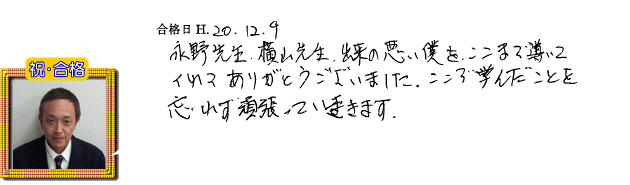 合格日 H.20.12.9
永野先生、横山先生、出来の悪い僕を、ここまで導いて
くれて ありがとうございました。ここで学んだことを
忘れず頑張っていきます。
祝・合格